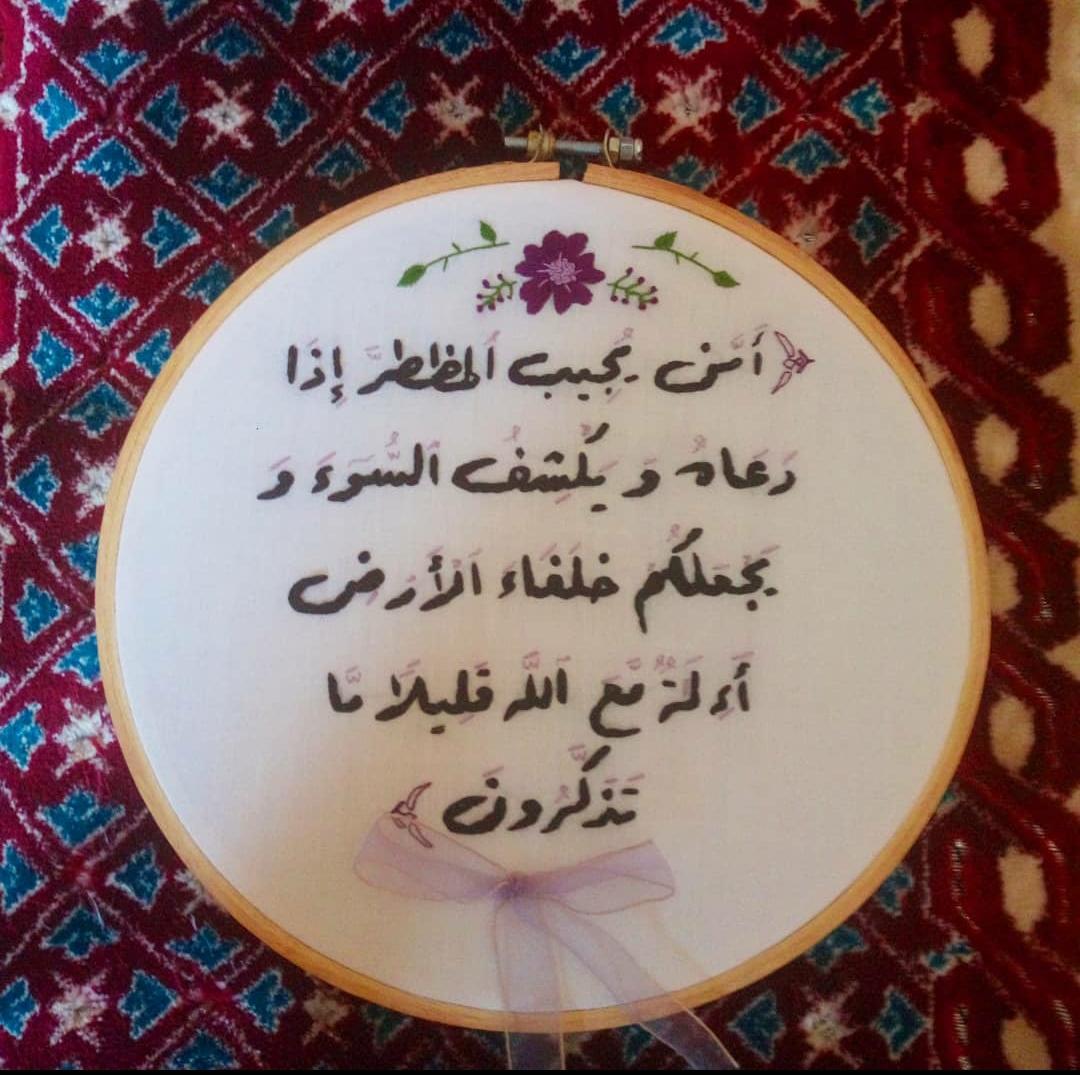 أَمَّن يُجِيبُ ٱلمظطرَّ إِذَا
دَعَاهُ وَ يَكْشِفُ ٱلسُّوٓءَ وَ
يَجْعَلُكُمْ خلَفَاءَ ٱلْأَرْضِ
أَءِلَهٌ مَّعَ ٱللَّه قَلِيلًا مَّا
تَذَكَّرُونَ